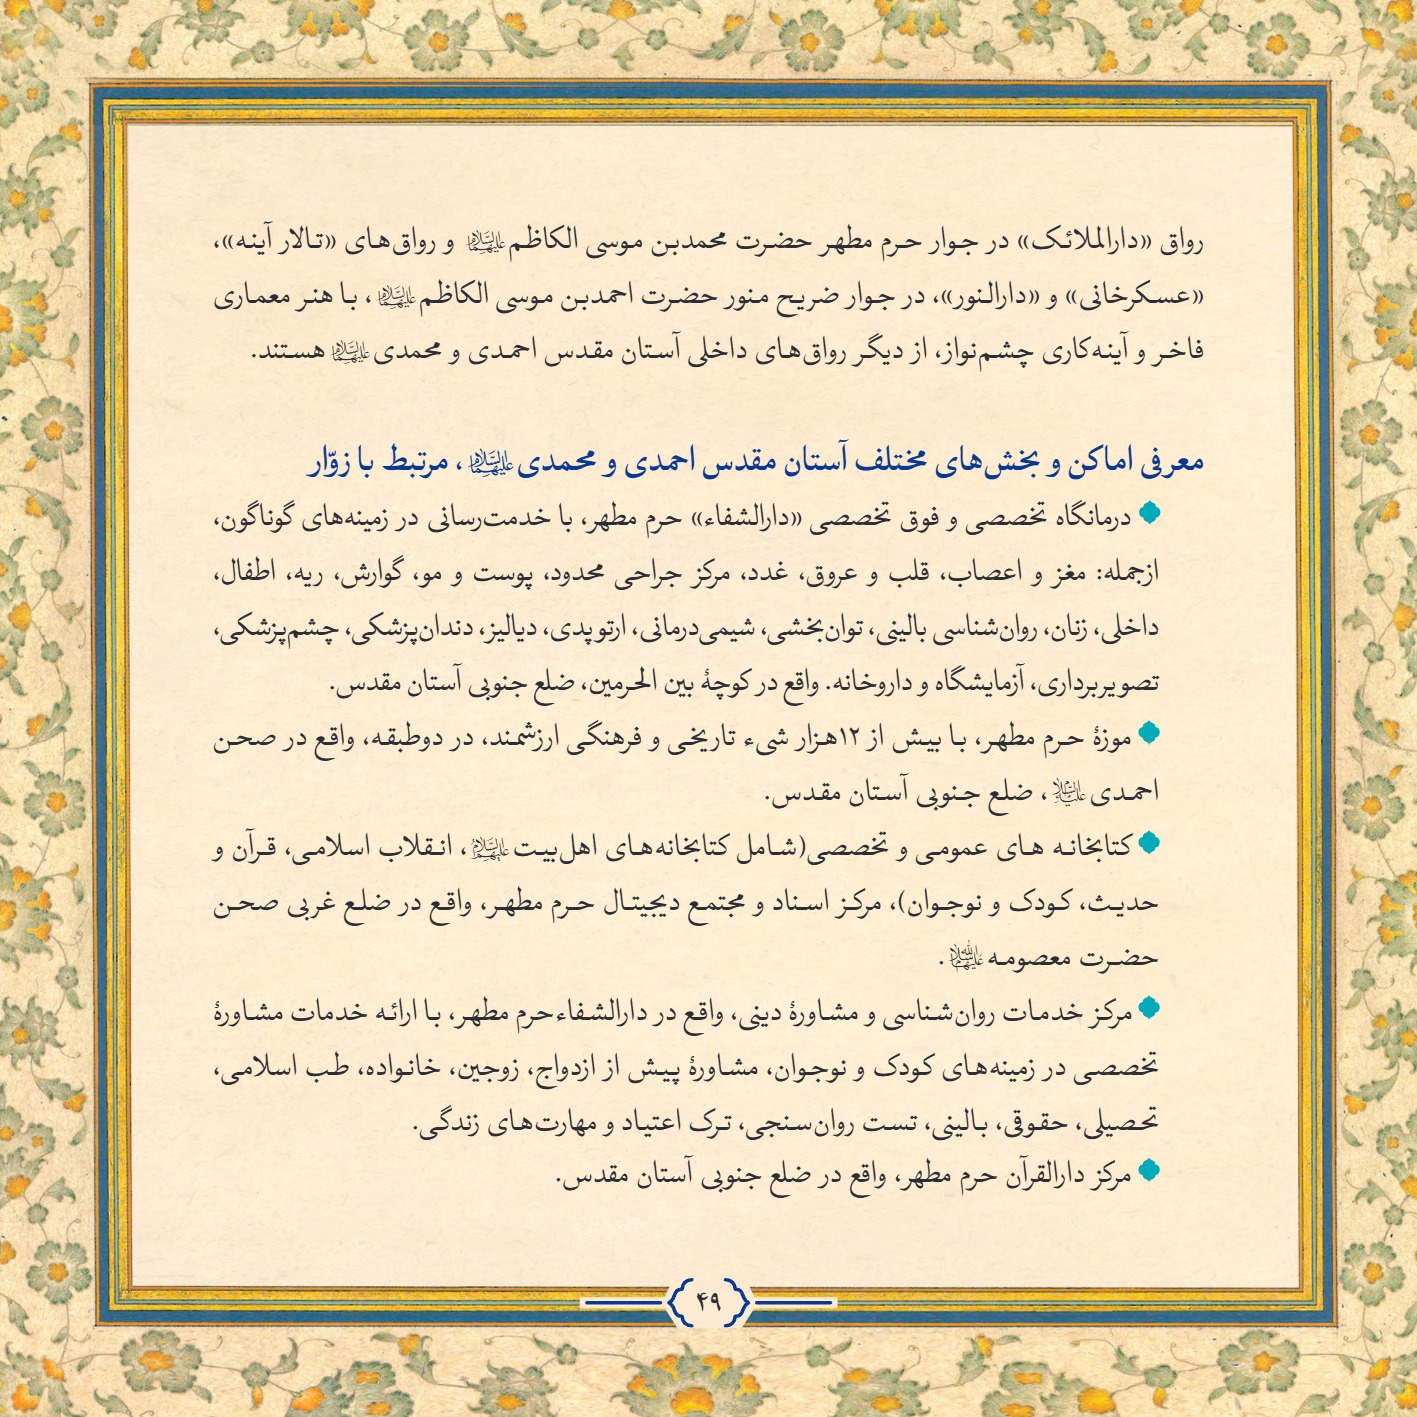 رواق «دارالملائک» در جوار حرم مطهر حضرت محمدبن موسی الکاظم علیهماالسلام و رواق‌های «تالار آینه»،
«عسکرخانی» و «دارالنور»، در جوار ضریح منور حضرت احمدبن موسی الکاظم علیهماالسلام، با هنر معماری
فاخر و آینه‌کاری چشم‌نواز، از دیگر رواق‌های داخلی آستان مقدس احمدی و محمدی علیهماالسلام هستند.
معرفی اماکن و بخش‌های مختلف آستان مقدس احمدی و محمدی علیهماالسلام، مرتبط با زوّار
درمانگاه تخصصی و فوق تخصصی «دارالشفاء» حرم مطهر، با خدمت‌رسانی در زمینه‌های گوناگون،
ازجمله: مغز و اعصاب، قلب و عروق، غدد، مرکز جراحی محدود، پوست و مو، گوارش، ریه، اطفال،
داخلی، زنان، روان‌شناسی بالینی، توان‌بخشی، شیمی‌درمانی، ارتوپدی، دیالیز، دندان‌پزشکی، چشم‌پزشکی،
تصویربرداری، آزمایشگاه و داروخانه. واقع در کوچهٔ بین الحرمین، ضلع جنوبی آستان مقدس.
موزهٔ حرم مطهر، با بیش از ۱۲هزار شیء تاریخی و فرهنگی ارزشمند، در دوطبقه، واقع در صحن
احمدی علیه‌السلام، ضلع جنوبی آستان مقدس.
کتابخانه های عمومی و تخصصی(شامل کتابخانه‌های اهل‌بیت علیهم‌السلام، انقلاب اسلامی، قرآن و
حدیث، کودک و نوجوان)، مرکز اسناد و مجتمع دیجیتال حرم مطهر، واقع در ضلع غربی صحن
حضرت معصومه سلام‌الله‌علیها.
مرکز خدمات روان‌شناسی و مشاورهٔ دینی، واقع در دارالشفاءحرم مطهر، با ارائه خدمات مشاورهٔ
تخصصی در زمینه‌های کودک و نوجوان، مشاورهٔ پیش از ازدواج، زوجین، خانواده، طب اسلامی،
تحصیلی، حقوقی، بالینی، تست روان‌سنجی، ترک اعتیاد و مهارت‌های زندگی.
مرکز دارالقرآن حرم مطهر، واقع در ضلع جنوبی آستان مقدس.
۴۹